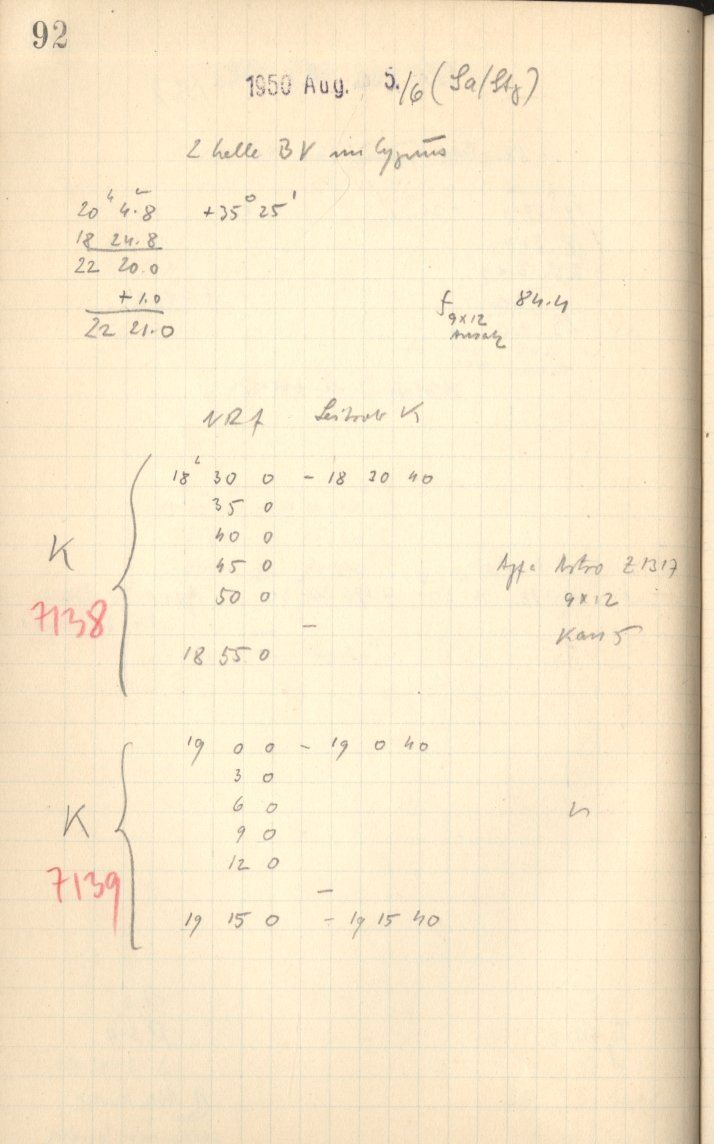 92
1950 Aug. 5./6 (Sa/Stg)
2 helle BV im Cygnus
20ʰ 4.8 +35° 25'
18 24.8
22 20.0
+1.0
22 21.0
f 9x12 84.4
Ansatz
NRf K
18ʰ 30 0 - 18 30 40
35 0
40 0
45 0
50 0
-
18 55 0
K
7138
Agfa Astro Z1317
9x12
Kass 5
19 0 0 - 19 0 40
3 0
6 0
9 0
12 0
-
19 15 0 - 19 15 40
K
7139